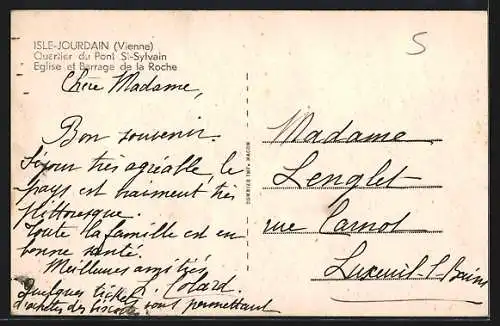 ISLE-JOURDAIN (Vienne)
Quartier du Pont St-Sylvain
Eglise et Barrage de la Roche
5
Chère Madame,
Bon souvenir.
Séjour très agréable, le
pays est vraiment très
pittoresque.
Toute la famille est en
bonne santé.
Meilleures amitiés
Quelques tickets
d'achetés des biscottes vous permettant
COMBIER IMP. MACON
Madame
Lenglet
rue Carnot
Luxeuil-l-Bains